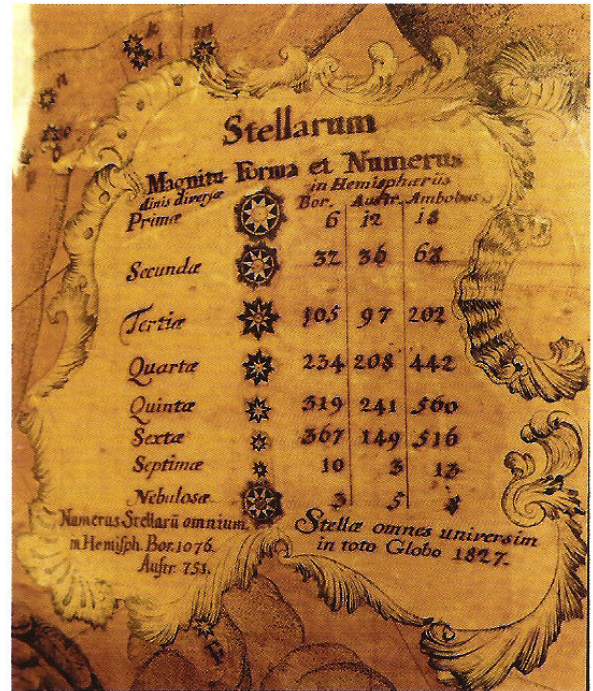 k
l
m
n
o
Stellarum
Magnitu- Forma et Numerus
dinis diversæ in Hemisphæriis
Bor. Austr. Ambobus
Primæ 6 12 18
Secundæ 32 36 68
Tertiæ 105 97 202
Quartæ 234 208 442
Quintæ 319 241 560
Sextæ 367 149 516
Septimæ 10 3 13
Nebulosæ 3 5 8
Numerus Stellarū omnium
in Hemisph. Bor. 1076.
Austr. 751.
Stellæ omnes universim
in toto Globo 1827.